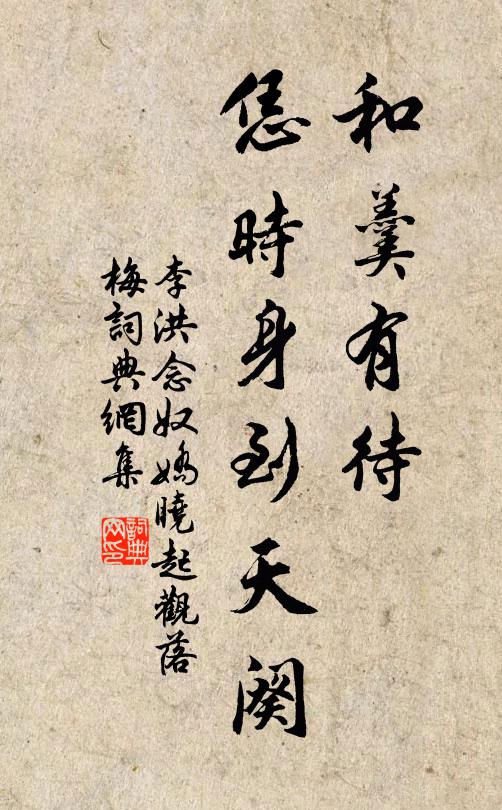 和羹有待
恁時身到天闕
李洪念奴嬌曉起觀落
梅詞典網集
詞典
网印